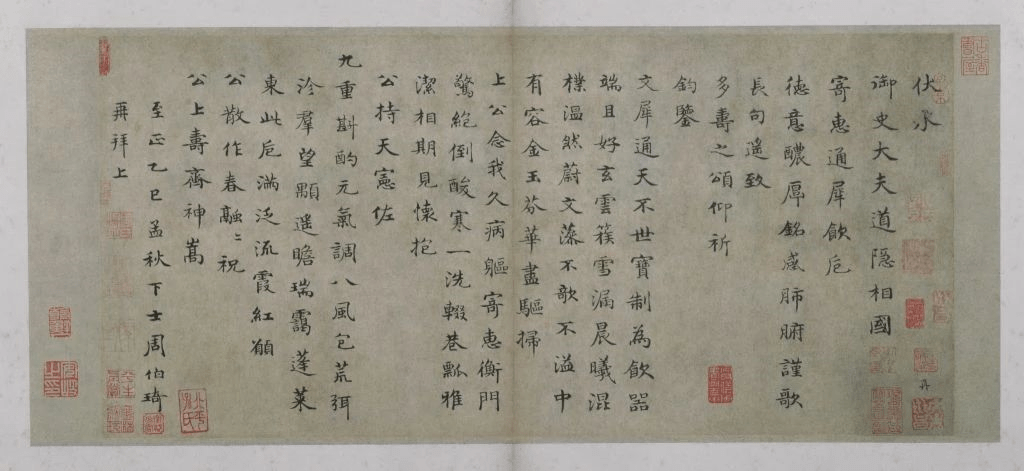 伏承
御史大夫道隱相國
寄惠通犀飲卮
德意醲厚銘感肺腑謹歌
長句遙致
多壽之頌仰祈
鈞鑒
文犀通天不世寶制為飲器
端且好玄雲蔟雪漏晨曦混
樸溫然蔚文藻不歌不溢中
有容金玉芬華盡驅掃
上公念我久病軀寄惠衡門
驚絕倒酸寒一洗輟巷瓢雅
潔相期見懷抱
公持天憲佐
九重斟酌元氣調八風包荒弭
沴羣望顒遥瞻瑞靄蓬萊
東此卮滿泛流霞紅願
公散作春融〻祝
公上壽齊神嵩
至正乙巳孟秋下士周伯琦
再拜上